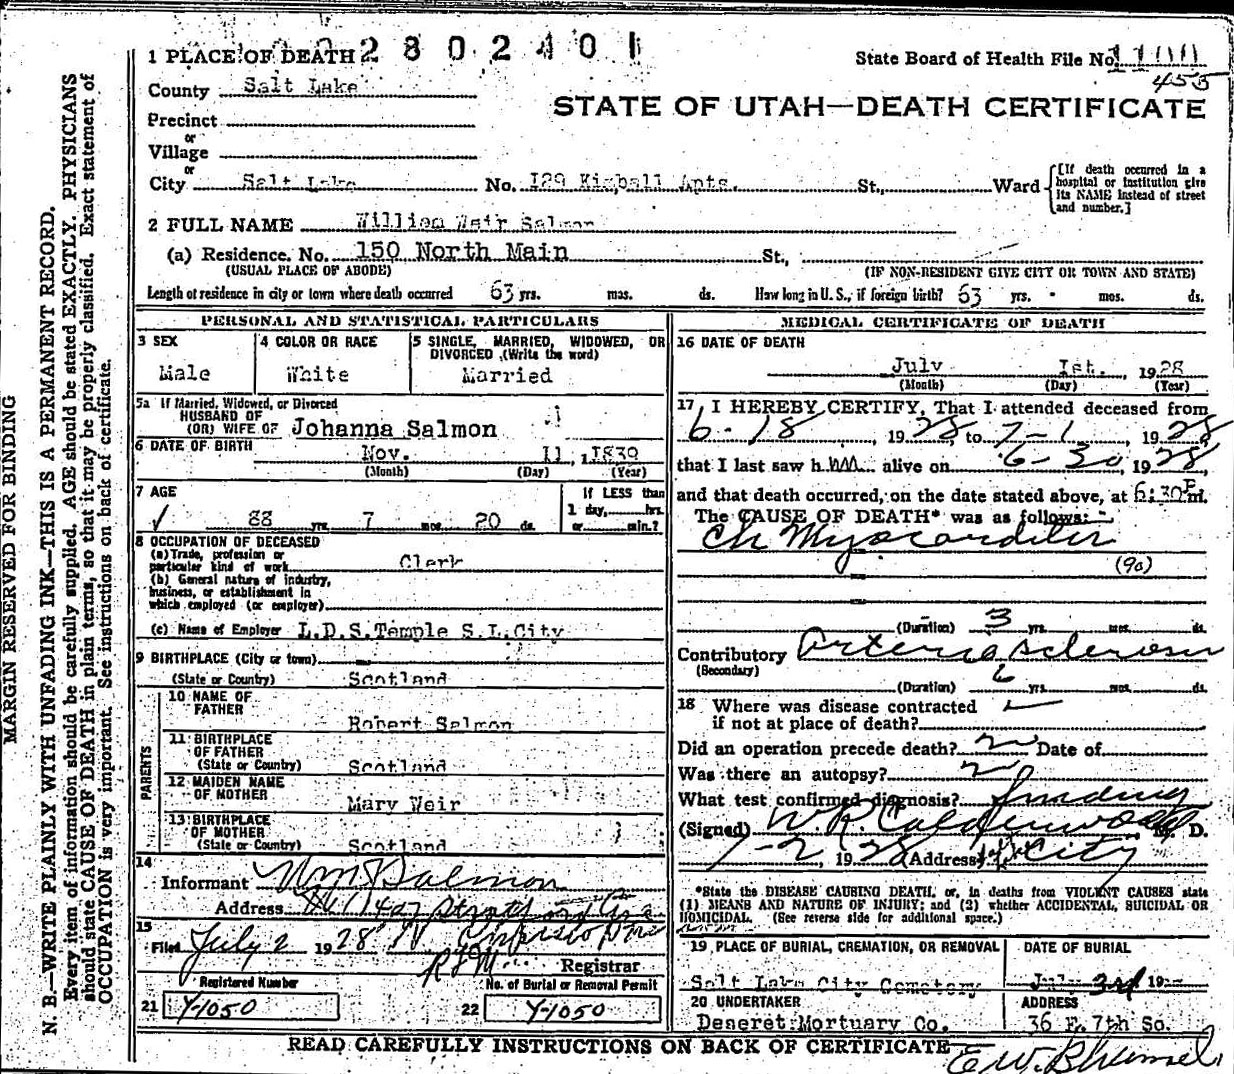 MARGIN RESERVED FOR BINDING
N. B.—WRITE PLAINLY WITH UNFADING INK—THIS IS A PERMANENT RECORD.
Every item of information should be carefully supplied. AGE should be stated EXACTLY. PHYSICIANS
should state CAUSE OF DEATH in plain terms, so that it may be properly classified. Exact statement of
OCCUPATION is very important. See instructions on back of certificate.
1 PLACE OF DEATH 2 8 0 2 4 0 1
State Board of Health File No. 1100
455
County Salt Lake
STATE OF UTAH—DEATH CERTIFICATE
Precinct
or
Village
or
City Salt Lake No. 129 Kimball Apts. St., Ward
[If death occurred in a
hospital or institution give
its NAME instead of street
and number.]
2 FULL NAME William Weir Salmon
(a) Residence. No. 150 North Main St.,
(USUAL PLACE OF ABODE) (IF NON-RESIDENT GIVE CITY OR TOWN AND STATE)
Length of residence in city or town where death occurred 63 yrs. mos. ds. How long in U. S., if foreign birth? 63 yrs. mos. ds.
PERSONAL AND STATISTICAL PARTICULARS
3 SEX
Male
4 COLOR OR RACE
White
5 SINGLE, MARRIED, WIDOWED, OR
DIVORCED (Write the word)
Married
5a If Married, Widowed, or Divorced
HUSBAND OF
(OR) WIFE OF Johanna Salmon
6 DATE OF BIRTH Nov. 11, 1839
(Month) (Day) (Year)
7 AGE
88 yrs. 7 mos. 20 ds.
If LESS than
1 day, hrs.
or min.?
8 OCCUPATION OF DECEASED
(a) Trade, profession or
particular kind of work Clerk
(b) General nature of industry,
business, or establishment in
which employed (or employer)
(c) Name of Employer L.D.S. Temple S.L. City
9 BIRTHPLACE (City or town)
(State or Country) Scotland
PARENTS
10 NAME OF
FATHER
Robert Salmon
11 BIRTHPLACE
OF FATHER
(State or Country) Scotland
12 MAIDEN NAME
OF MOTHER
Mary Weir
13 BIRTHPLACE
OF MOTHER
(State or Country) Scotland
14
Informant Wm Salmon
Address
15
Filed July 2 1928
Registrar
Registered Number
No. of Burial or Removal Permit
21 Y-1050 22 Y-1050
MEDICAL CERTIFICATE OF DEATH
16 DATE OF DEATH
July 1st. , 1928
(Month) (Day) (Year)
17 I HEREBY CERTIFY, That I attended deceased from
6-18, 1928 to 7-1, 1928
that I last saw him alive on 6-30, 1928,
and that death occurred, on the date stated above, at 6:30 P m.
The CAUSE OF DEATH* was as follows:
Ch Myocarditis
(90)
(Duration) 3 yrs. mos. ds.
Contributory Arterio Sclerosis
(Secondary)
(Duration) 6 yrs. mos. ds.
18 Where was disease contracted
if not at place of death?
Did an operation precede death? Date of
Was there an autopsy?
What test confirmed diagnosis?
(Signed) W. R. Calderwood M. D.
7-2, 1928 Address City
*State the DISEASE CAUSING DEATH, or, in deaths from VIOLENT CAUSES state
(1) MEANS AND NATURE OF INJURY; and (2) whether ACCIDENTAL, SUICIDAL OR
HOMICIDAL. (See reverse side for additional space.)
19 PLACE OF BURIAL, CREMATION, OR REMOVAL
Salt Lake City Cemetery
DATE OF BURIAL
July 3rd 19
20 UNDERTAKER
Deseret Mortuary Co.
ADDRESS
36 E. 7th So.
READ CAREFULLY INSTRUCTIONS ON BACK OF CERTIFICATE